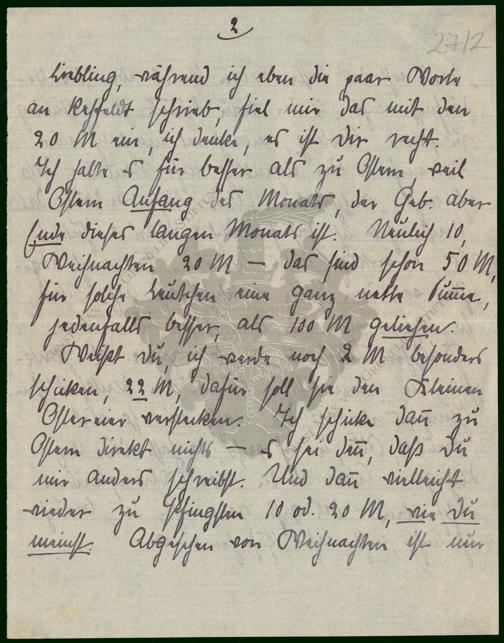 2
27/2
Liebling, während ich eben die paar Worte
an Rehfeldt schrieb, fiel mir das mit den
20 M ein, ich denke, es ist Dir recht.
Ich halte es für besser als zu Ostern, weil
Ostern Anfang des Monats, der Geb. aber
Ende dieses langen Monats ist. Neulich 10,
Weihnachten 20 M – das sind schon 50 M,
für solche Leutchen eine ganz nette Summe,
jedenfalls besser, als 100 M geliehen.
Weißt Du, ich werde noch 2 M besonders
schicken, 22 M, dafür soll sie den Kleinen
Ostereier verstecken. Ich schicke dann zu
Ostern direkt nichts – es sei denn, daß Du
mir anders schreibst. Und dann vielleicht
wieder zu Pfingsten 10 od. 20 M, wie Du
meinst. Abgesehen von Weihnachten ist nur